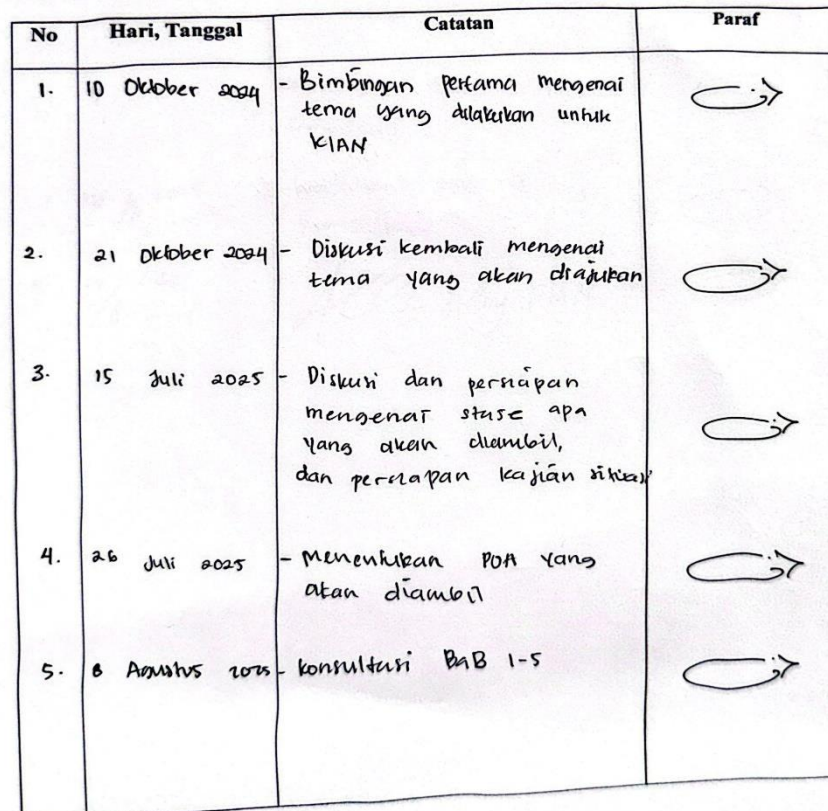 No Hari, Tanggal Catatan Paraf
1. 10 Oktober 2024 - Bimbingan pertama mengenai
tema yang dilakukan untuk
KIAN
2. 21 Oktober 2024 - Diskusi kembali mengenai
tema yang akan diajukan
3. 15 Juli 2025 - Diskusi dan persiapan
mengenai stase apa
yang akan diambil,
dan persiapan kajian situasi
4. 26 Juli 2025 - Menentukan POA yang
akan diambil
5. 8 Agustus 2025 - Konsultasi BAB 1-5